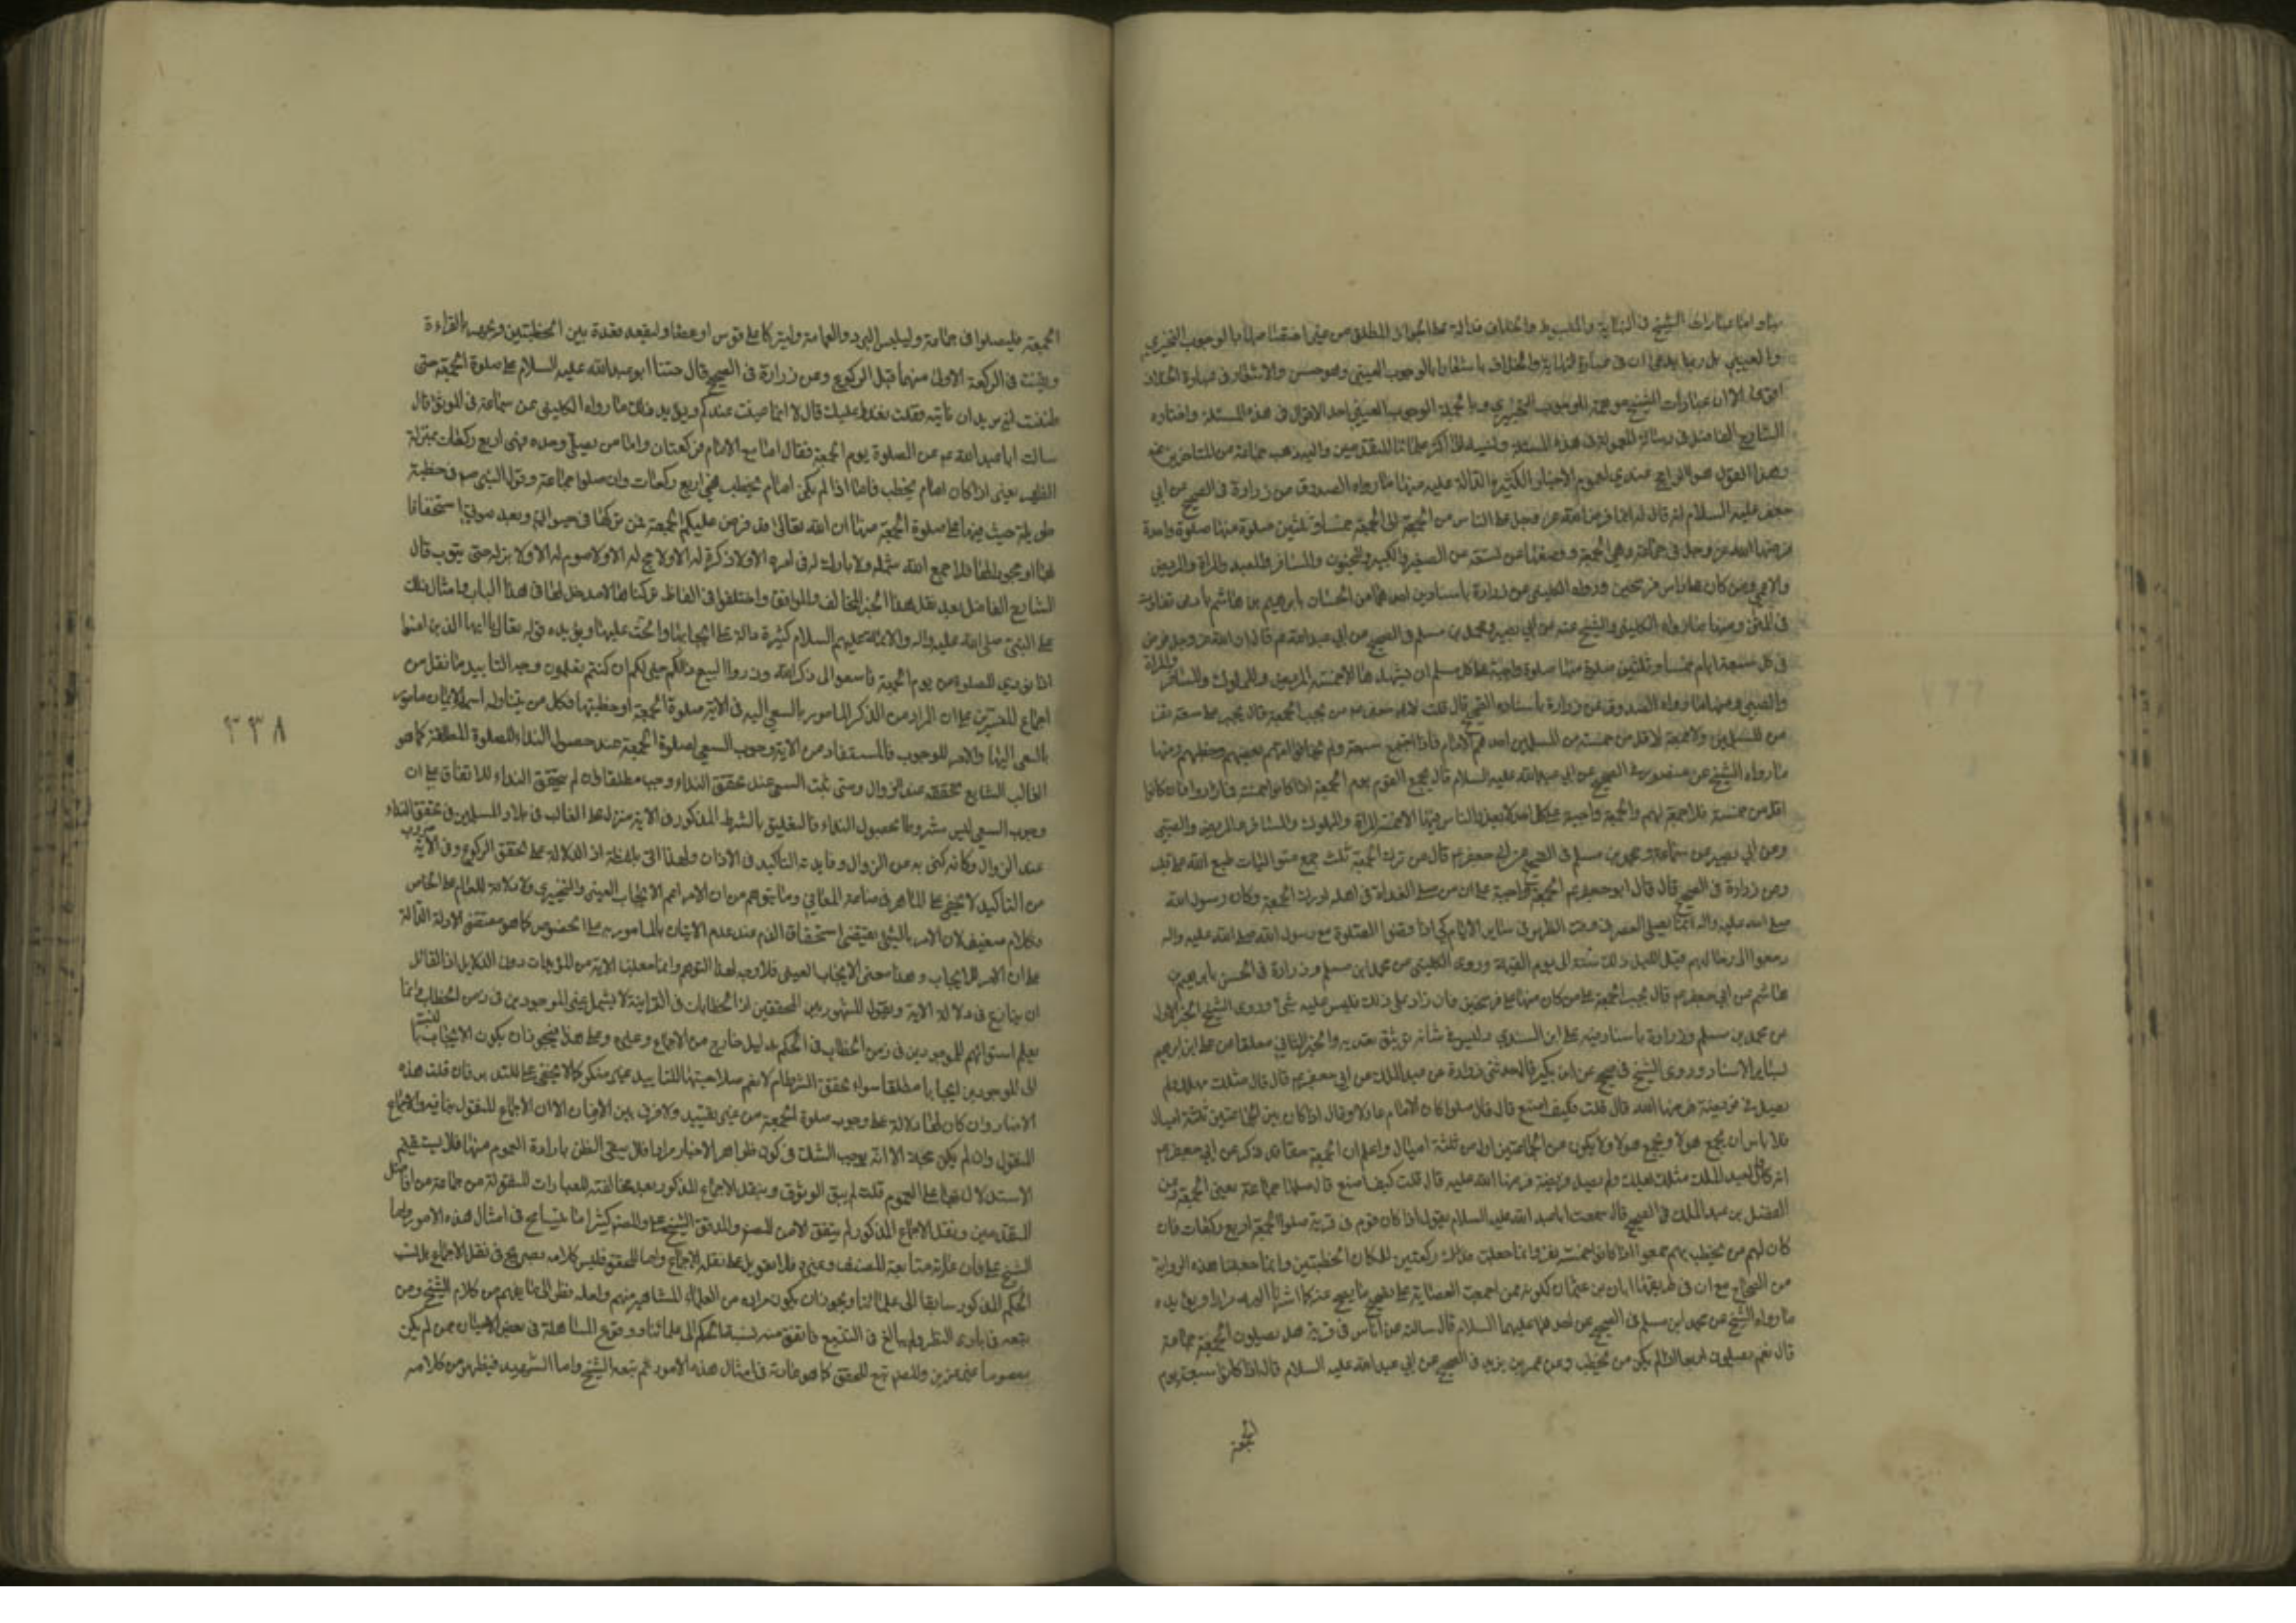 واما عبارات الشيخ في النهاية والمبسوط والخلاف فدالة على الجواز المطلق من غير اختصاصها بالوجوب التخييري
والعيني بل ربما يدعى ان في عبارة النهاية والخلاف باشعارا بالوجوب العيني وهو حسن والاشعار في عبارة الخلاف
اقوى الا ان عبارات الشيخ موهمة للوجوب التخييري وبالجملة الوجوب العيني احد الاقوال في هذه المسئلة واختاره
الشارح الفاضل في رسالته المعمولة في هذه المسئلة ونسبه الى اكثر علمائنا المتقدمين واليه ذهب جماعة من المتاخرين عنه
وهذا القول هو الراجح عندي لعموم الاخبار الكثيرة الدالة عليه منها ما رواه الصدوق عن زرارة في الصحيح عن ابي
جعفر عليه السلام انه قال له انما فرض الله عز وجل على الناس من الجمعة الى الجمعة خمسا وثلثين صلوة منها صلوة واحدة
فرضها الله عز وجل في جماعة وهي الجمعة ووضعها عن تسعة عن الصغير والكبير والمجنون والمسافر والعبد والمراة والمريض
والاعمى ومن كان على راس فرسخين ورواه الكليني عن زرارة باسنادين احدهما من الحسان بابرهيم بن هاشم بادنى تفاوت
في المتن ومنها ما رواه الكليني والشيخ عنه عن ابي بصير ومحمد بن مسلم في الصحيح عن ابي عبد الله عم قال ان الله عز وجل فرض
في كل سبعة ايام خمسا وثلثين صلوة منها صلوة واجبة على كل مسلم ان يشهدها الا خمسة المريض والمملوك والمسافر والمراة
والصبي ومنها ما رواه الصدوق عن زرارة باسناده القوي قال قلت لابي جعفر عم من يجب الجمعة قال يجب على سبعة نفر
من المسلمين ولا جمعة لاقل من خمسة من المسلمين احدهم الامام فاذا اجتمع سبعة ولم يخافوا امهم بعضهم وخطبهم ومنها
ما رواه الشيخ عن منصور في الصحيح عن ابي عبد الله عليه السلام قال يجمع القوم يوم الجمعة اذا كانوا خمسة فما زادوا فان كانوا
اقل من خمسة فلا جمعة لهم والجمعة واجبة على كل احد لا يعذر الناس فيها الا خمسة المراة والمملوك والمسافر والمريض والصبي
وعن ابي بصير ومحمد بن مسلم في الصحيح عن ابي جعفر عم قال من ترك الجمعة ثلث جمع متواليات طبع الله على قلبه
وعن زرارة في الصحيح قال قال ابو جعفر عم الجمعة واجبة على من ان صلى الغداة في اهله ادرك الجمعة وكان رسول الله
صلى الله عليه واله انما يصلي العصر في وقت الظهر في ساير الايام كي اذا قضوا الصلوة مع رسول الله صلى الله عليه واله
رجعوا الى رحالهم قبل الليل وذلك سنة الى يوم القيمة وروى الكليني عن محمد بن مسلم وزرارة في الحسن بابرهيم بن
هاشم عن ابي جعفر عم قال يجب الجمعة على من كان منها على فرسخين فان زاد على ذلك فليس عليه شئ وروى الشيخ الخبر الاول
عن محمد بن مسلم وزرارة باسناد فيه علي ابن السندي وليس في شانه توثيق يعتد به والخبر الثاني معلقا عن علي بن ابرهيم
بساير الاسناد وروى الشيخ في الصحيح عن ابن بكير قال حدثني زرارة عن عبد الملك عن ابي جعفر عم قال قال مثلك يهلك ولم
يصل فريضة فرضها الله قال قلت فكيف اصنع قال قال صلوا كان الامام عادلا وقال اذا كان بين الجماعتين ثلثة اميال
فلا باس ان يجمع هولاء ويجمع هولاء ولا يكون بين الجماعتين اقل من ثلثة اميال واعلم ان الجمعة حق ذكر عن ابي جعفر عم
انه قال لعبد الملك مثلك يهلك ولم يصل فريضة فرضها الله عليه قال قلت كيف اصنع قال صلها جماعة يعني الجمعة وعن
الفضل بن عبد الملك في الصحيح قال سمعت ابا عبد الله عليه السلام يقول اذا كان قوم في قرية صلوا الجمعة اربع ركعات فان
كان لهم من يخطب بهم جمعوا اذا كانوا خمسة نفر وانما جعلت ركعتين لمكان الخطبتين وانما جعلنا هذه الرواية
من الصحاح مع ان في طريقها ابان بن عثمان لكونه ممن اجمعت العصابة على تصحيح ما يصح عنه كما اشرنا اليه مرارا ويؤيده
ما رواه الشيخ عن محمد ابن مسلم في الصحيح عن احدهما عليهما السلام قال سالته عن اناس في قرية هل يصلون الجمعة جماعة
قال نعم يصلون اربعا اذا لم يكن من يخطب وعن عمر بن يزيد في الصحيح عن ابي عبد الله عليه السلام قال اذا كانوا سبعة يوم
الجمعة
الجمعة فليصلوا في جماعة وليلبس البرد والعمامة وليتوكا على قوس او عصا وليقعد قعدة بين الخطبتين ويجهر بالقراءة
ويقنت في الركعة الاولى منهما قبل الركوع وعن زرارة في الصحيح قال حثنا ابو عبد الله عليه السلام على صلوة الجمعة حتى
ظننت انه يريد ان ناتيه فقلت نغدو عليك قال لا انما عنيت عندكم ويؤيد ذلك ما رواه الكليني عن سماعة في الموثق قال
سالت ابا عبد الله عم عن الصلوة يوم الجمعة فقال اما مع الامام فركعتان واما من يصلي وحده فهي اربع ركعات بمنزلة
الظهر يعني اذا كان امام يخطب فاما اذا لم يكن امام يخطب فهي اربع ركعات وان صلوا جماعة وقول النبي ص في خطبة
طويلة حيث فيها على صلوة الجمعة منها ان الله تعالى قد فرض عليكم الجمعة فمن تركها في حيواتي وبعد موتي استخفافا
بها او جحودا لها فلا جمع الله شمله ولا بارك له في امره الا ولا زكوة له الا ولا حج له الا ولا صوم له الا ولا بر له حتى يتوب قال
الشارح الفاضل بعد نقل هذا الخبر المخالف والموافق واختلفوا في الفاظ تركناها لا مدخل لها في هذا الباب وامثال ذلك
عن النبي صلى الله عليه واله والائمة عليهم السلام كثيرة دالة على ايجابها والحث عليها ويؤيده قوله تعالى يا ايها الذين امنوا
اذا نودي للصلوة من يوم الجمعة فاسعوا الى ذكر الله وذروا البيع ذلكم خير لكم ان كنتم تعلمون وجه التاييد ما نقل من
اجماع المفسرين على ان المراد من الذكر المامور بالسعي اليه في الاية صلوة الجمعة او خطبتها فكل من يتناوله اسم الايمان مامور
بالسعي اليها والامر للوجوب فالمستفاد من الاية وجوب السعي لصلوة الجمعة عند حصول النداء للصلوة المطلقة كما هو
الغالب الشايع تحققه عند الزوال ومتى ثبت السعي عند تحقق النداء وجب مطلقا وان لم يتحقق النداء للاتفاق على ان
وجوب السعي ليس مشروطا بحصول النداء فالتعليق بالشرط المذكور في الاية منزلة على الغالب في بلاد المسلمين في تحقق النداء
عند الزوال وكانه كنى به عن الزوال وفايدته التاكيد في الاذان ولهذا اتى بلفظة اذا الدالة على تحقق الركوع وفي الاية ضروب
من التاكيد لا يخفى على الماهر في صناعة المعاني وما يتوهم من ان الامر اعم الايجاب العيني والتخييري ولا دلالة للعام على الخاص
فكلام ضعيف لان الامر بالشئ يقتضي استحقاق الذم عند عدم الاتيان بالمامور به على الخصوص كما هو مقتضى الادلة الدالة
على ان الامر للايجاب وهذا معنى الايجاب العيني فلا وجه لهذا التوهم وانما جعلنا الاية من المؤيدات دون الدلايل اذ القائل
ان ينازع في دلالة الاية ويقول المشهور بين المحققين ان الخطابات في القرانية لا يشمل غير الموجودين في زمن الخطاب وانما
يعلم استوائهم للموجودين في زمن الخطاب في الحكم بدليل خارج من الاجماع وغيره وعلى هذا فيجوز ان يكون الايجاب بالنسبة
الى الموجودين ايجابا مطلقا سواء تحقق الشرط ام لا نعم صلاحيتها للتاييد غير منكر كما لا يخفى على المتدبر فان قلت هذه
الاخبار وان كان لها دلالة على وجوب صلوة الجمعة من غير تقييد ولا فرق بين الازمان الا ان الاجماع المنقول ينافيه والاجماع
المنقول وان لم يكن حجة الا انه يوجب الشك في كون ظواهر الاخبار مرادا فلا يبقى الظن بارادة العموم منها فلا يستقيم
الاستدلال بها على العموم قلت لم يبق الوثوق بنقل الاجماع المذكور بعد مخالفته للعبارات المنقولة من جماعة من افاضل
المتقدمين ونقل الاجماع المذكور لم يتفق الا من المص والمحقق الشيخ علي والمص كثيرا ما يتسامح في امثال هذه الامور واما
الشيخ علي فان عادته متابعة المصنف وغيره فلا تعويل على نقله الاجماع واما المحقق فليس كلامه صريح في نقل الاجماع بل نسب
الحكم المذكور سابقا الى علمائنا ويجوز ان يكون مراده من العلماء المشاهير منهم ولعله نظر الى ما يفهم من كلام الشيخ ومن
تبعه في بادي النظر ولم يبالغ في التتبع فاتفق منه نسبة الحكم الى علمائنا ووقوع المساهلة في بعض الاحيان ممن لم يكن
معصوما غير عزيز والمص تبع المحقق كما هو عادته في امثال هذه الامور ثم تبعه الشيخ واما الشهيد فيظهر من كلامه
٣٣٨